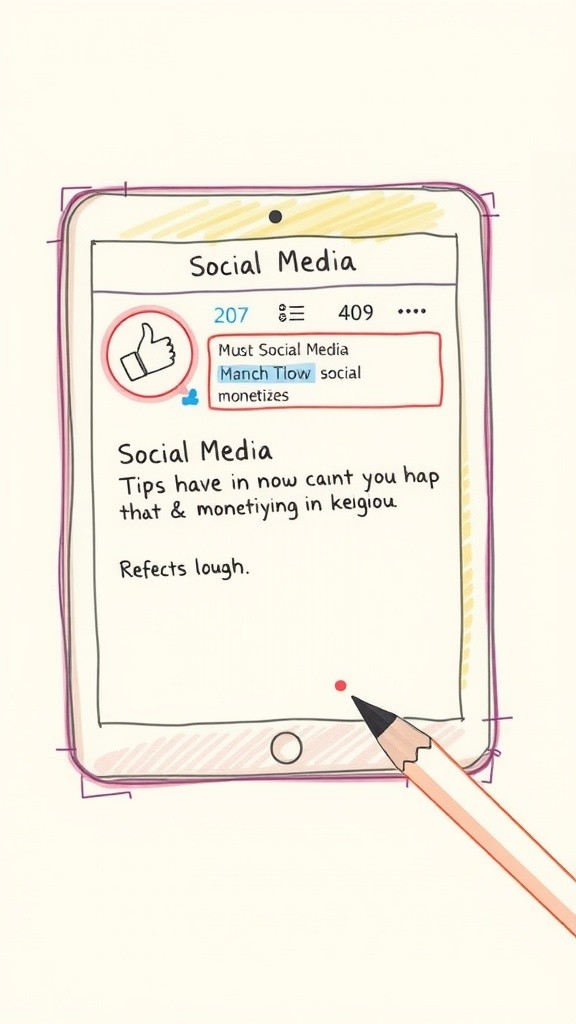 Social Media
207 409 ••••
Must Social Media
Manch Tlow social
monetizes
Social Media
Tips have in now caint you hap
that & monetiying in keigiou
Refects lough.